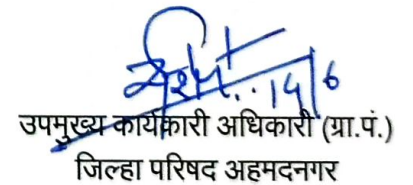 14/6
उपमुख्य कार्यकारी अधिकारी (ग्रा.पं.)
जिल्हा परिषद अहमदनगर